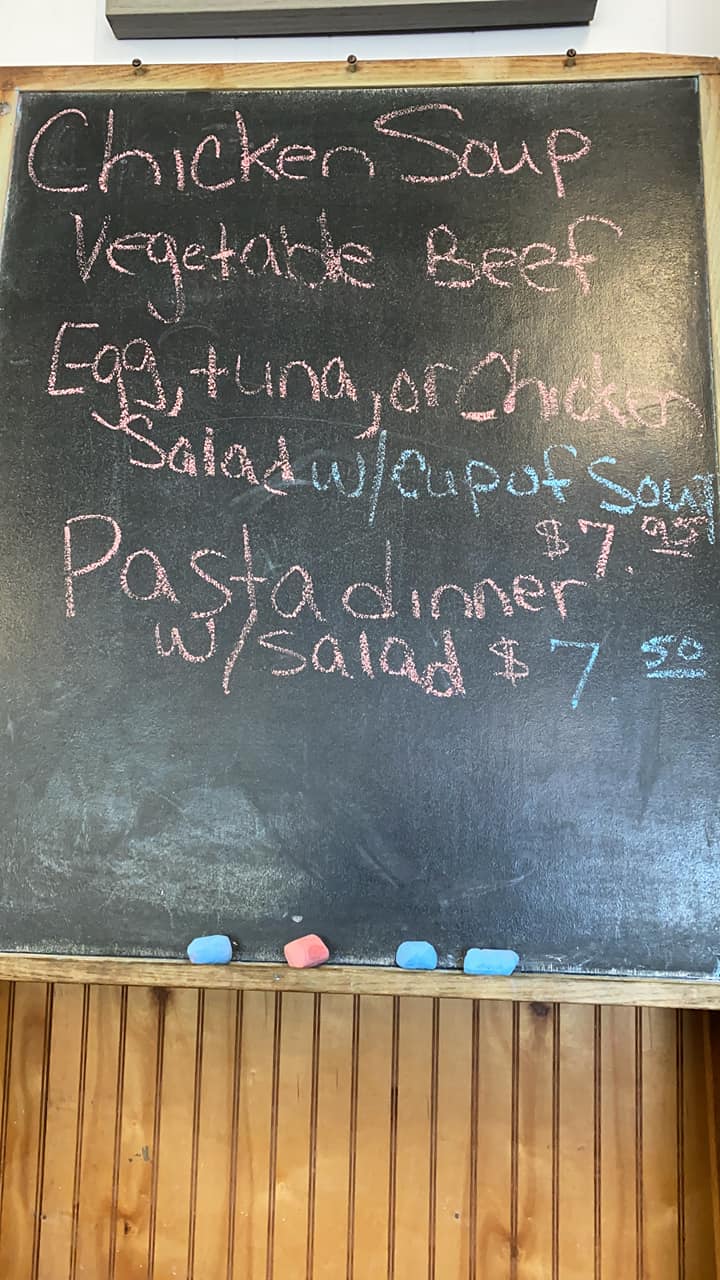 Chicken Soup
Vegetable Beef
Egg, tuna, or Chicken
Salad w/cup of Soup
$7.95
Pasta dinner
w/salad $7.50